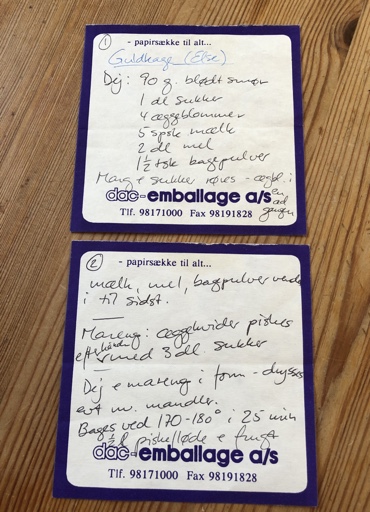 1
- papirsække til alt...
Guldkage (Else)
Dej: 90 g. blødt smør
1 dl sukker
4 æggeblommer
5 spsk mælk
2 dl mel
1½ tsk bagepulver
Marg & sukker røres - ægbl. i
en ad gangen
dac-emballage a/s
Tlf. 98171000 Fax 98191828
2
- papirsække til alt...
mælk, mel, bagepulver vendes
i til sidst.
Mareng: æggehvider piskes
efterhånden med 3 dl sukker
Dej & mareng i form - drysses
evt m. mandler.
Bages ved 170-180° i 25 min
½ l piskefløde & frugt
dac-emballage a/s
Tlf. 98171000 Fax 98191828